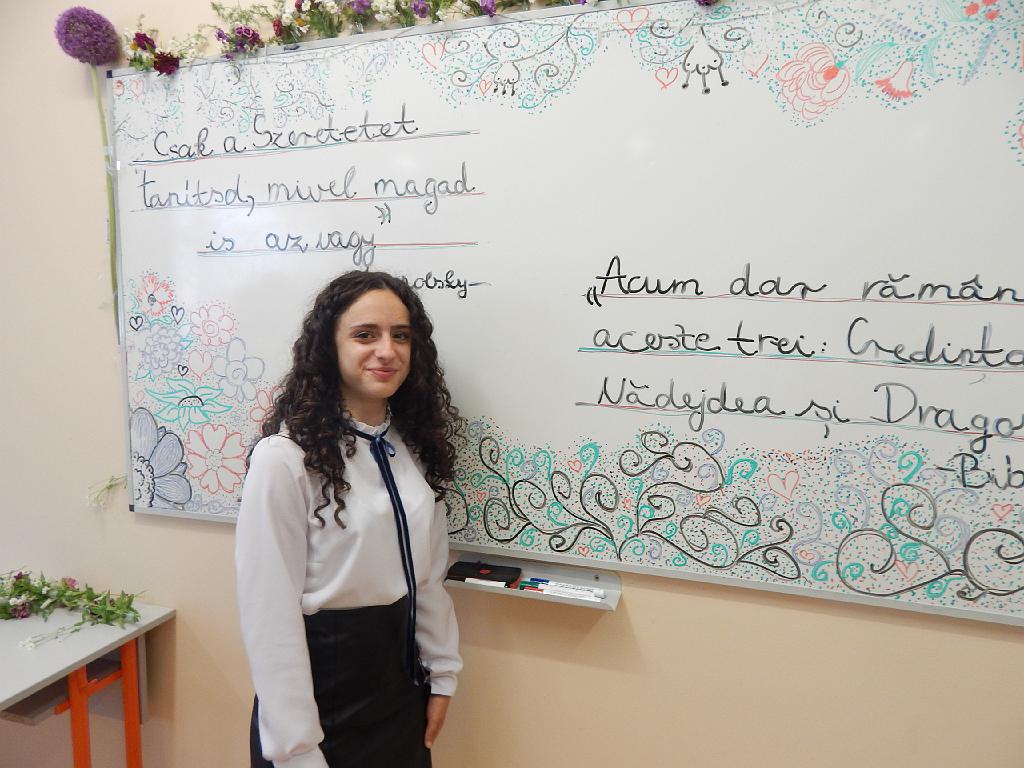 Csak a Szeretetet
tanítsd, mivel
magad
is az vagy”
„Acum dar rămân
aceste trei: Credința
Nădejdea și Drago
-Bib